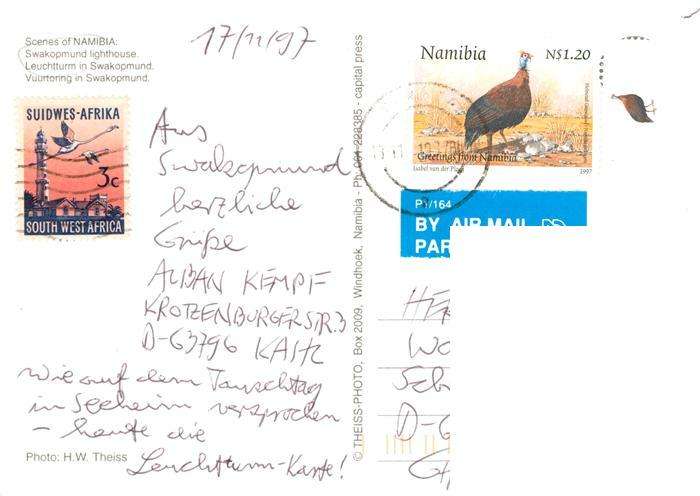 Scenes of NAMIBIA:
Swakopmund lighthouse.
Leuchtturm in Swakopmund.
Vuurtoring in Swakopmund.
17/11/97
SUIDWES-AFRIKA
3c
SOUTH WEST AFRICA
Aus
Swakopmund
herzliche
Grüße
ALBAN KEMPF
KROTZENBURGERSTR.3
D-63796 KAHL
Wie auf dem Tauschtag
in Seeheim versprochen
- heute die
Leuchtturm-Karte!
Photo: H.W. Theiss
© THEISS-PHOTO, Box 2009, Windhoek, Namibia - Ph: 061 228385 - capital press
Namibia N$1.20
Greetings from Namibia
Isabel van der Ploeg
1997
PV/164
BY AIR MAIL
PAR
HER
Wo
Sch
D-6